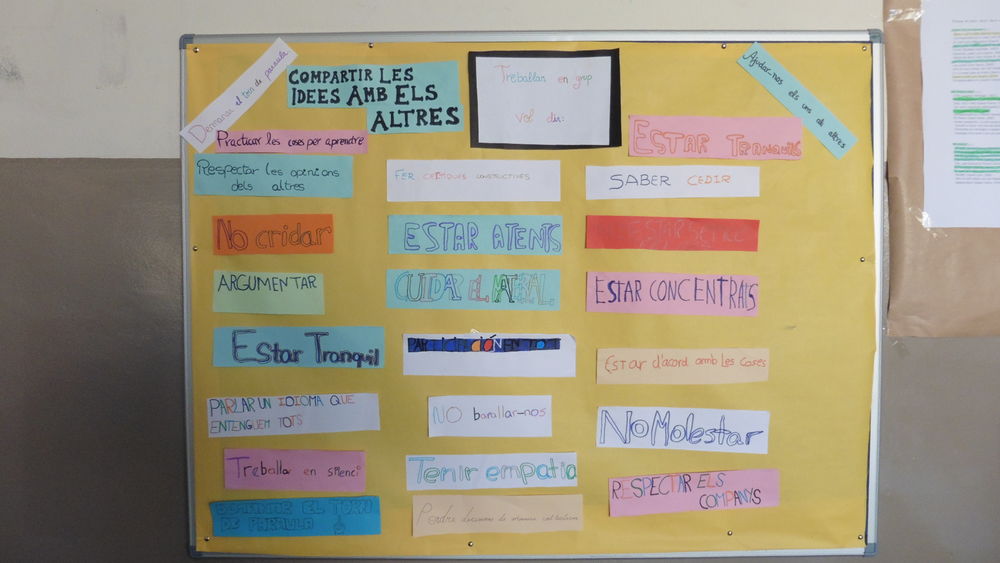 Demanar el torn de paraula
COMPARTIR LES
IDEES AMB ELS
ALTRES
Treballar en grup
vol dir:
Ajudar-nos els uns als altres
Practicar les coses per aprendre
ESTAR TRANQUILS
Respectar les opinions
dels altres
FER CRÍTIQUES CONSTRUCTIVES
SABER CEDIR
No cridar
ESTAR ATENTS
ESTAR SENSE
ARGUMENTAR
CUIDAR EL MATERIAL
ESTAR CONCENTRATS
Estar Tranquil
PARTICIPACIÓN EN TOT
Estar d'acord amb les coses
PARLAR UN IDIOMA QUE
ENTENGUEM TOTS
NO barallar-nos
No Molestar
Treballar en silenci
Tenir empatia
RESPECTAR ELS
COMPANYS
DEMANAR EL TORN
DE PARAULA
Pendre decisions de manera col·lectiva